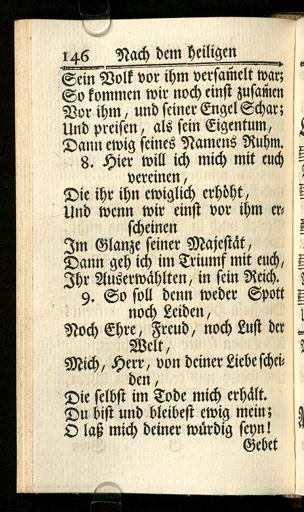 146 Nach dem heiligen
Sein Volk vor ihm versam̃elt war;
So kommen wir noch einst zusam̃en
Vor ihm, und seiner Engel Schar;
Und preisen, als sein Eigentum,
Dann ewig seines Namens Ruhm.
8. Hier will ich mich mit euch
vereinen,
Die ihr ihn ewiglich erhöht,
Und wenn wir einst vor ihm er-
scheinen
Im Glanze seiner Majestät,
Dann geh ich im Triumf mit euch,
Ihr Auserwählten, in sein Reich.
9. So soll denn weder Spott
noch Leiden,
Noch Ehre, Freud, noch Lust der
Welt,
Mich, Herr, von deiner Liebe schei-
den,
Die selbst im Tode mich erhält.
Du bist und bleibest ewig mein;
O laß mich deiner würdig seyn!
Gebet